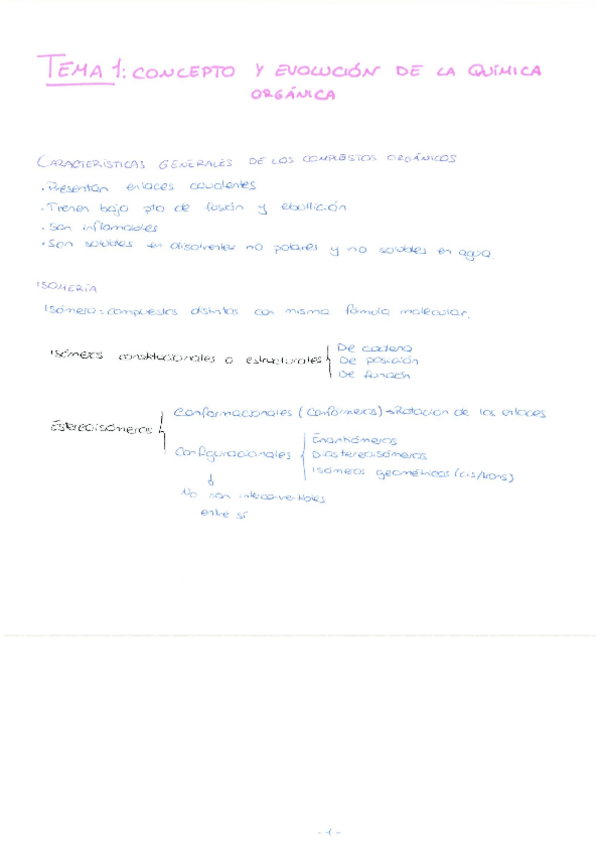 TEMA 1: CONCEPTO Y EVOLUCIÓN DE LA QUÍMICA
ORGÁNICA
CARACTERÍSTICAS GENERALES DE LOS COMPUESTOS ORGÁNICOS
• Presentan enlaces covalentes
• Tienen bajo pto de fusión y ebullición
• Son inflamables
• Son solubles en disolventes no polares y no solubles en agua.
ISOMERÍA
Isómero: compuestos distintos con misma fórmula molecular.
Isómeros constitucionales o estructurales
De cadena
De posición
De función
Estereoisómeros
Conformacionales (Confórmeros) → Rotación de los enlaces
Configuracionales
Enantiómeros
Diastereoisómeros
Isómeros geométricos (cis/trans)
↓
No son interconvertibles
entre sí
- 1 -